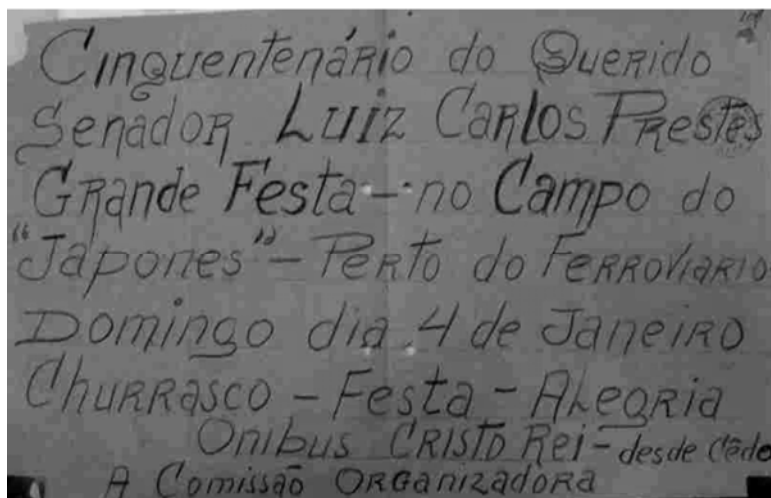 Cinquentenário do Querido
Senador Luiz Carlos Prestes
Grande Festa - no Campo do
"Japones" - Perto do Ferroviario
Domingo dia 4 de Janeiro
Churrasco - Festa - Alegria
Onibus Cristo Rei - desde Cêdo
A Comissão Organizadora